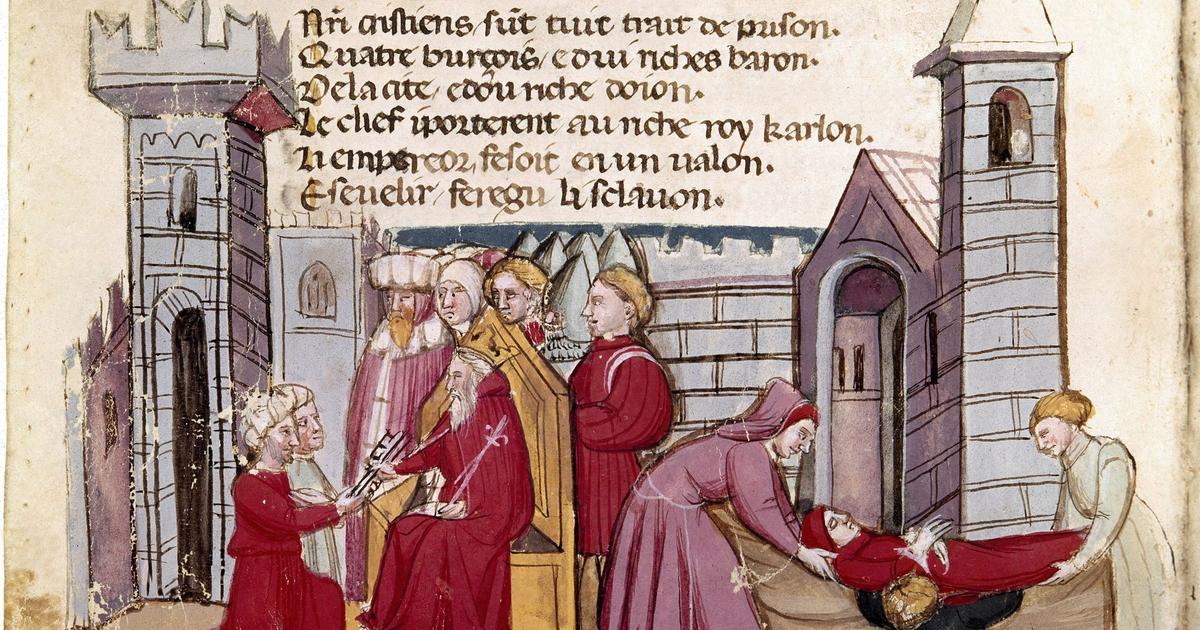 Nr̃i cristiens / sũt tuit trait de prison.
Quatre burçois / e dui riches baron.
De la cite / e dou riche doion.
Le chef i porterent au riche roy karlon.
Li empereor / fesoit en un ualon.
Eseuelir / feregu li sclauon.